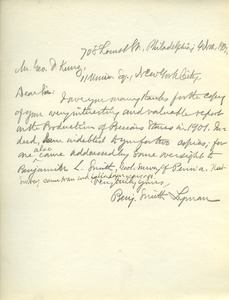 708 Locust St., Philadelphia,
Mr. Geo. F. Kunz,
11 Union Sq., New York City.
Dear Sir: I have you many thanks for the copy
of your very interesting and valuable report
on the Production of Precious Stones in 1901. In-
deed, I am indebted to you for two copies; for
one also came addressed by some oversight to
Benjamin L. Smith, Geol. Survey of Penn'a.
Very truly yours,
Benj. Smith Lyman